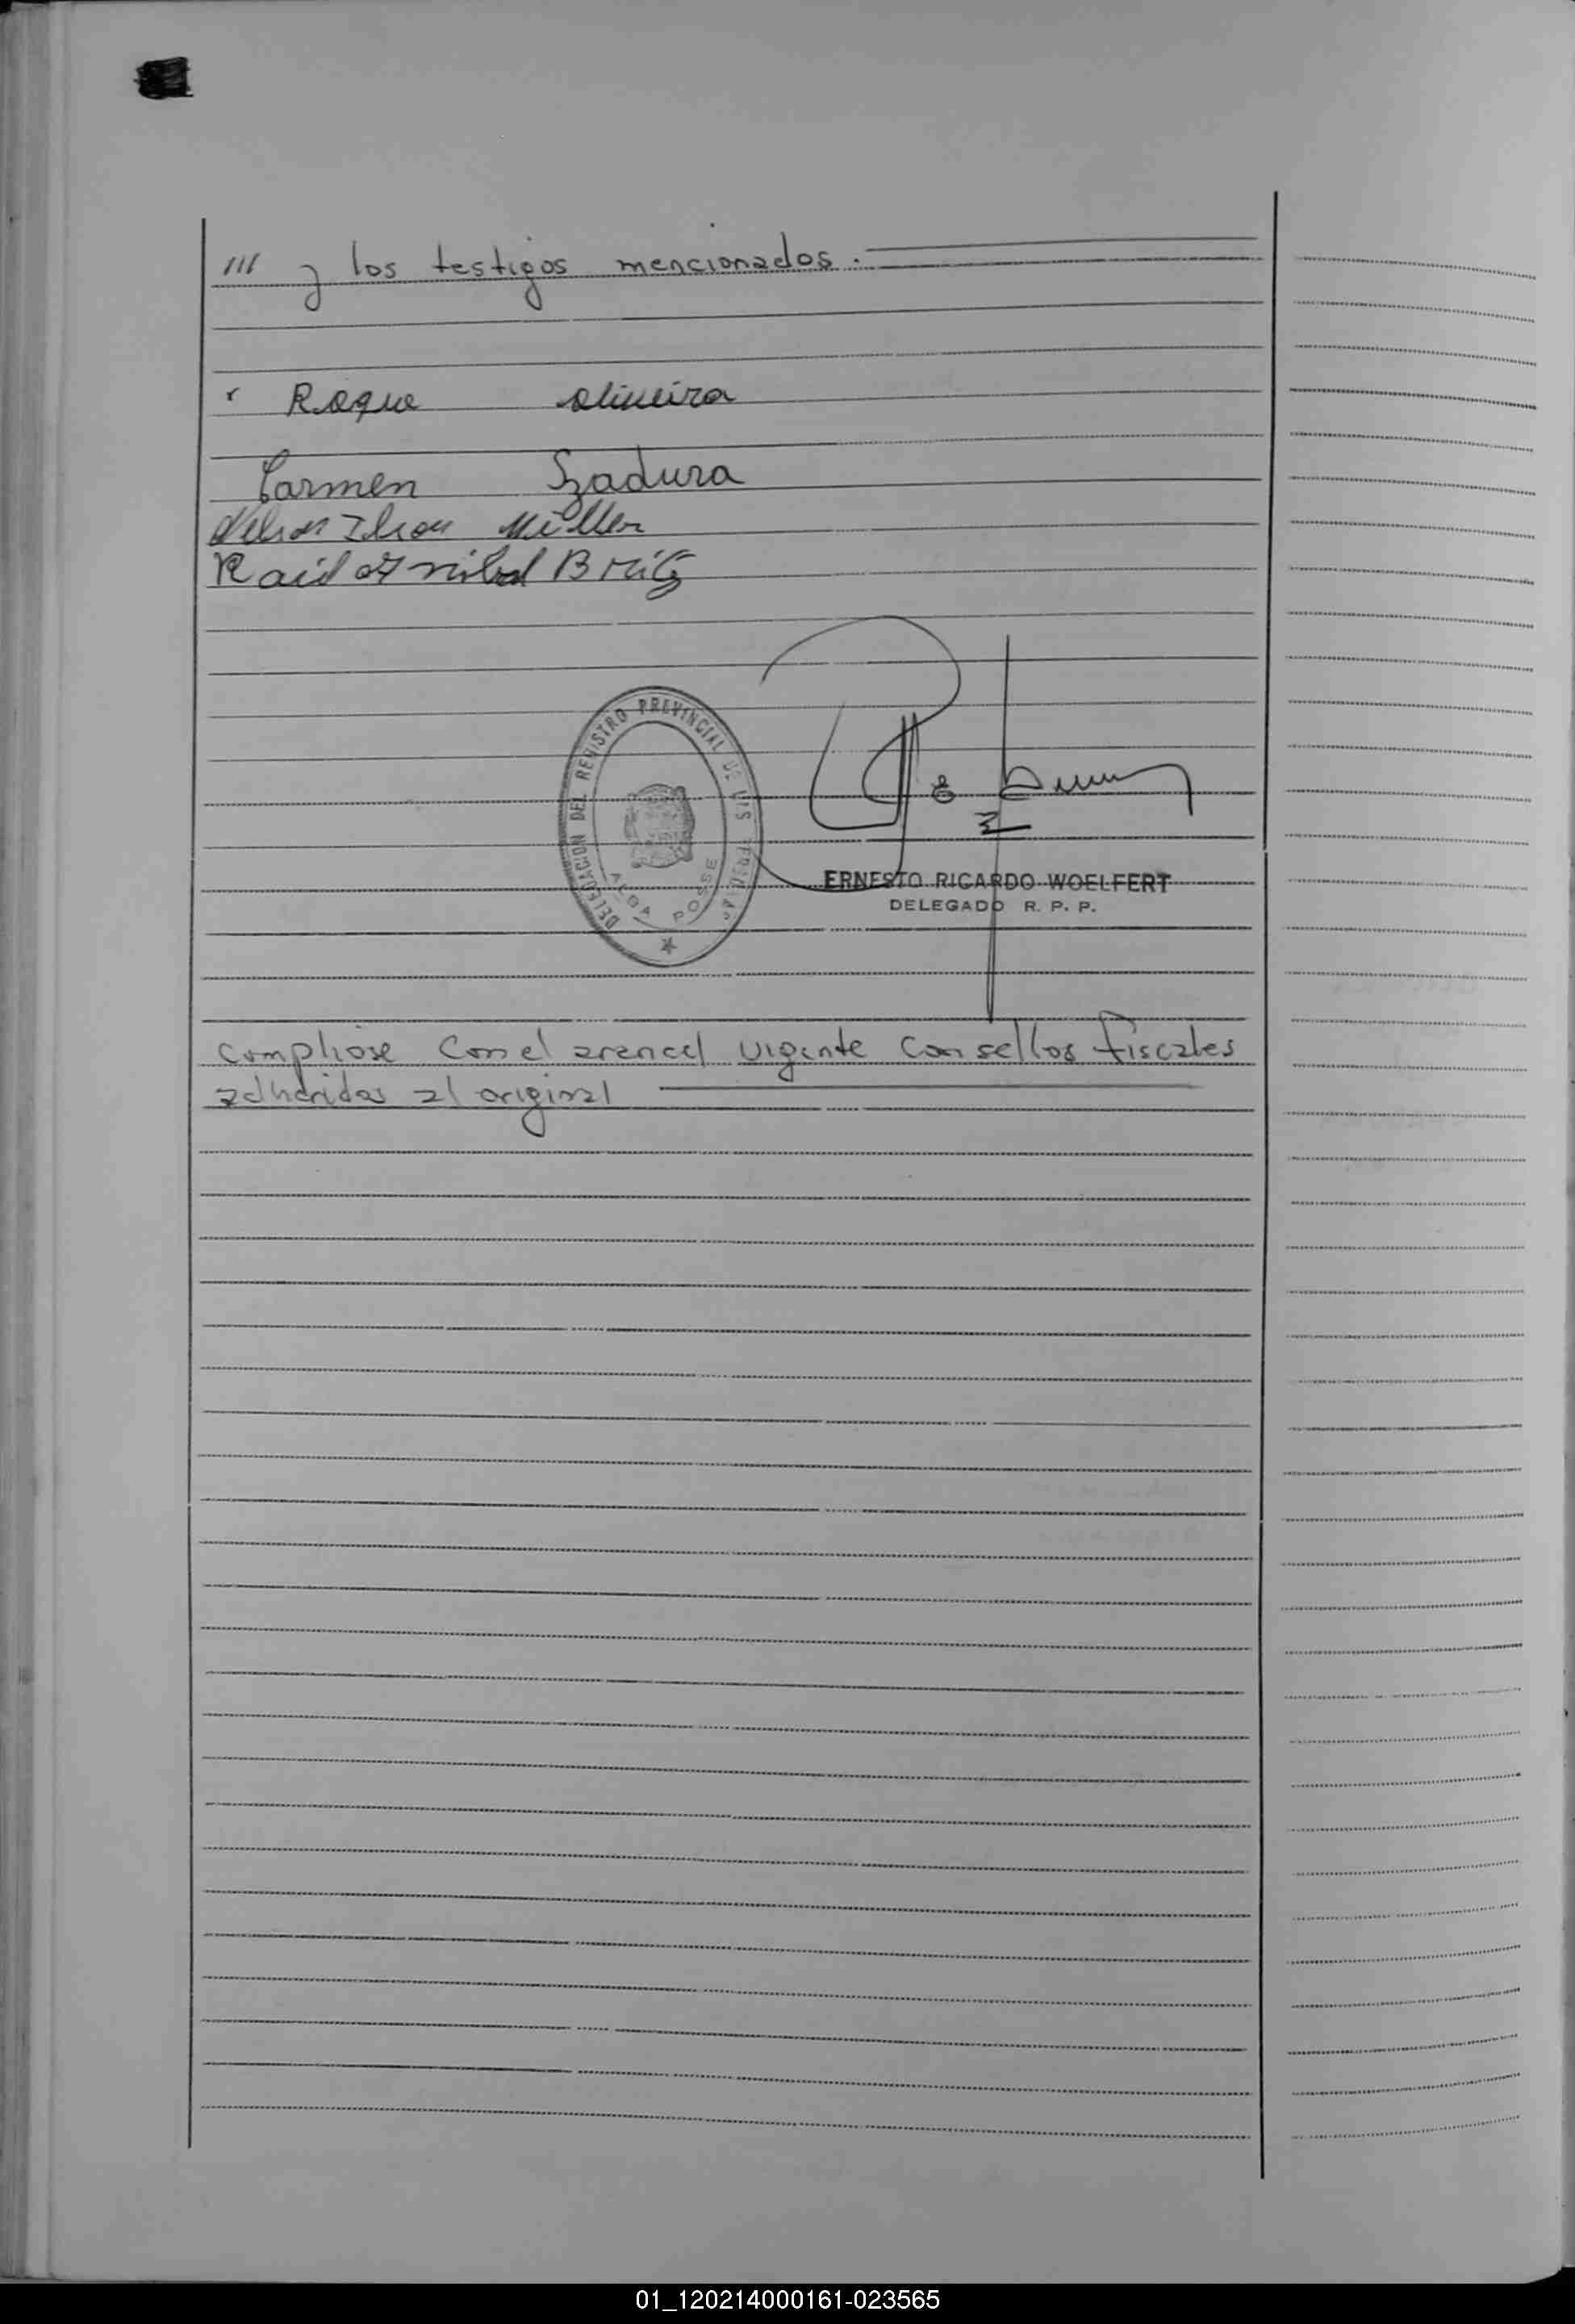 /// y los testigos mencionados.
Roque Oliveira
Carmen Szadura
Müller
Britz
DELEGACION DEL REGISTRO PROVINCIAL DE LAS PERSONAS
ALBA POSSE
ERNESTO RICARDO WOELFERT
DELEGADO R. P. P.
Compliose Con el arancel vigente Con sellos fiscales
adheridos al original
01_120214000161-023565